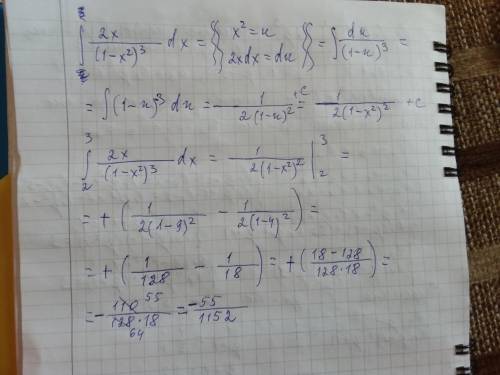 ∫ 2x/(1-x²)³ dx = { x² = u 2xdx = du } = ∫ du/(1-u)³ =
= ∫ (1-u)³ du = 1/(2(1-u)²) +c = 1/(2(1-x²)²) + c
∫₂³ 2x/(1-x²)³ dx = 1/(2(1-x²)²) |₂³ =
= + (1/(2(1-9)²) - 1/(2(1-4)²)) =
= + (1/128 - 1/18) = + ((18-128)/(128·18)) =
= - 110 55/(128·18 64) = -55/1152